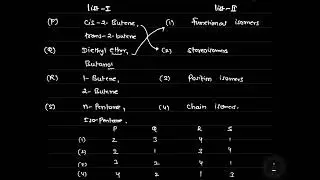 List-I List-II
(P) Cis-2-Butene, trans-2-butene (1) functional isomers
(Q) Diethyl ether, Butanol (2) Stereoisomers
(R) 1-Butene, 2-Butene (3) Position isomers
(S) n-Pentane, Iso-Pentane (4) Chain isomers
P Q R S
(1) 2 3 4 1
(2) 2 1 3 4
(3) 3 2 4 1
(4) 4 2 1 3